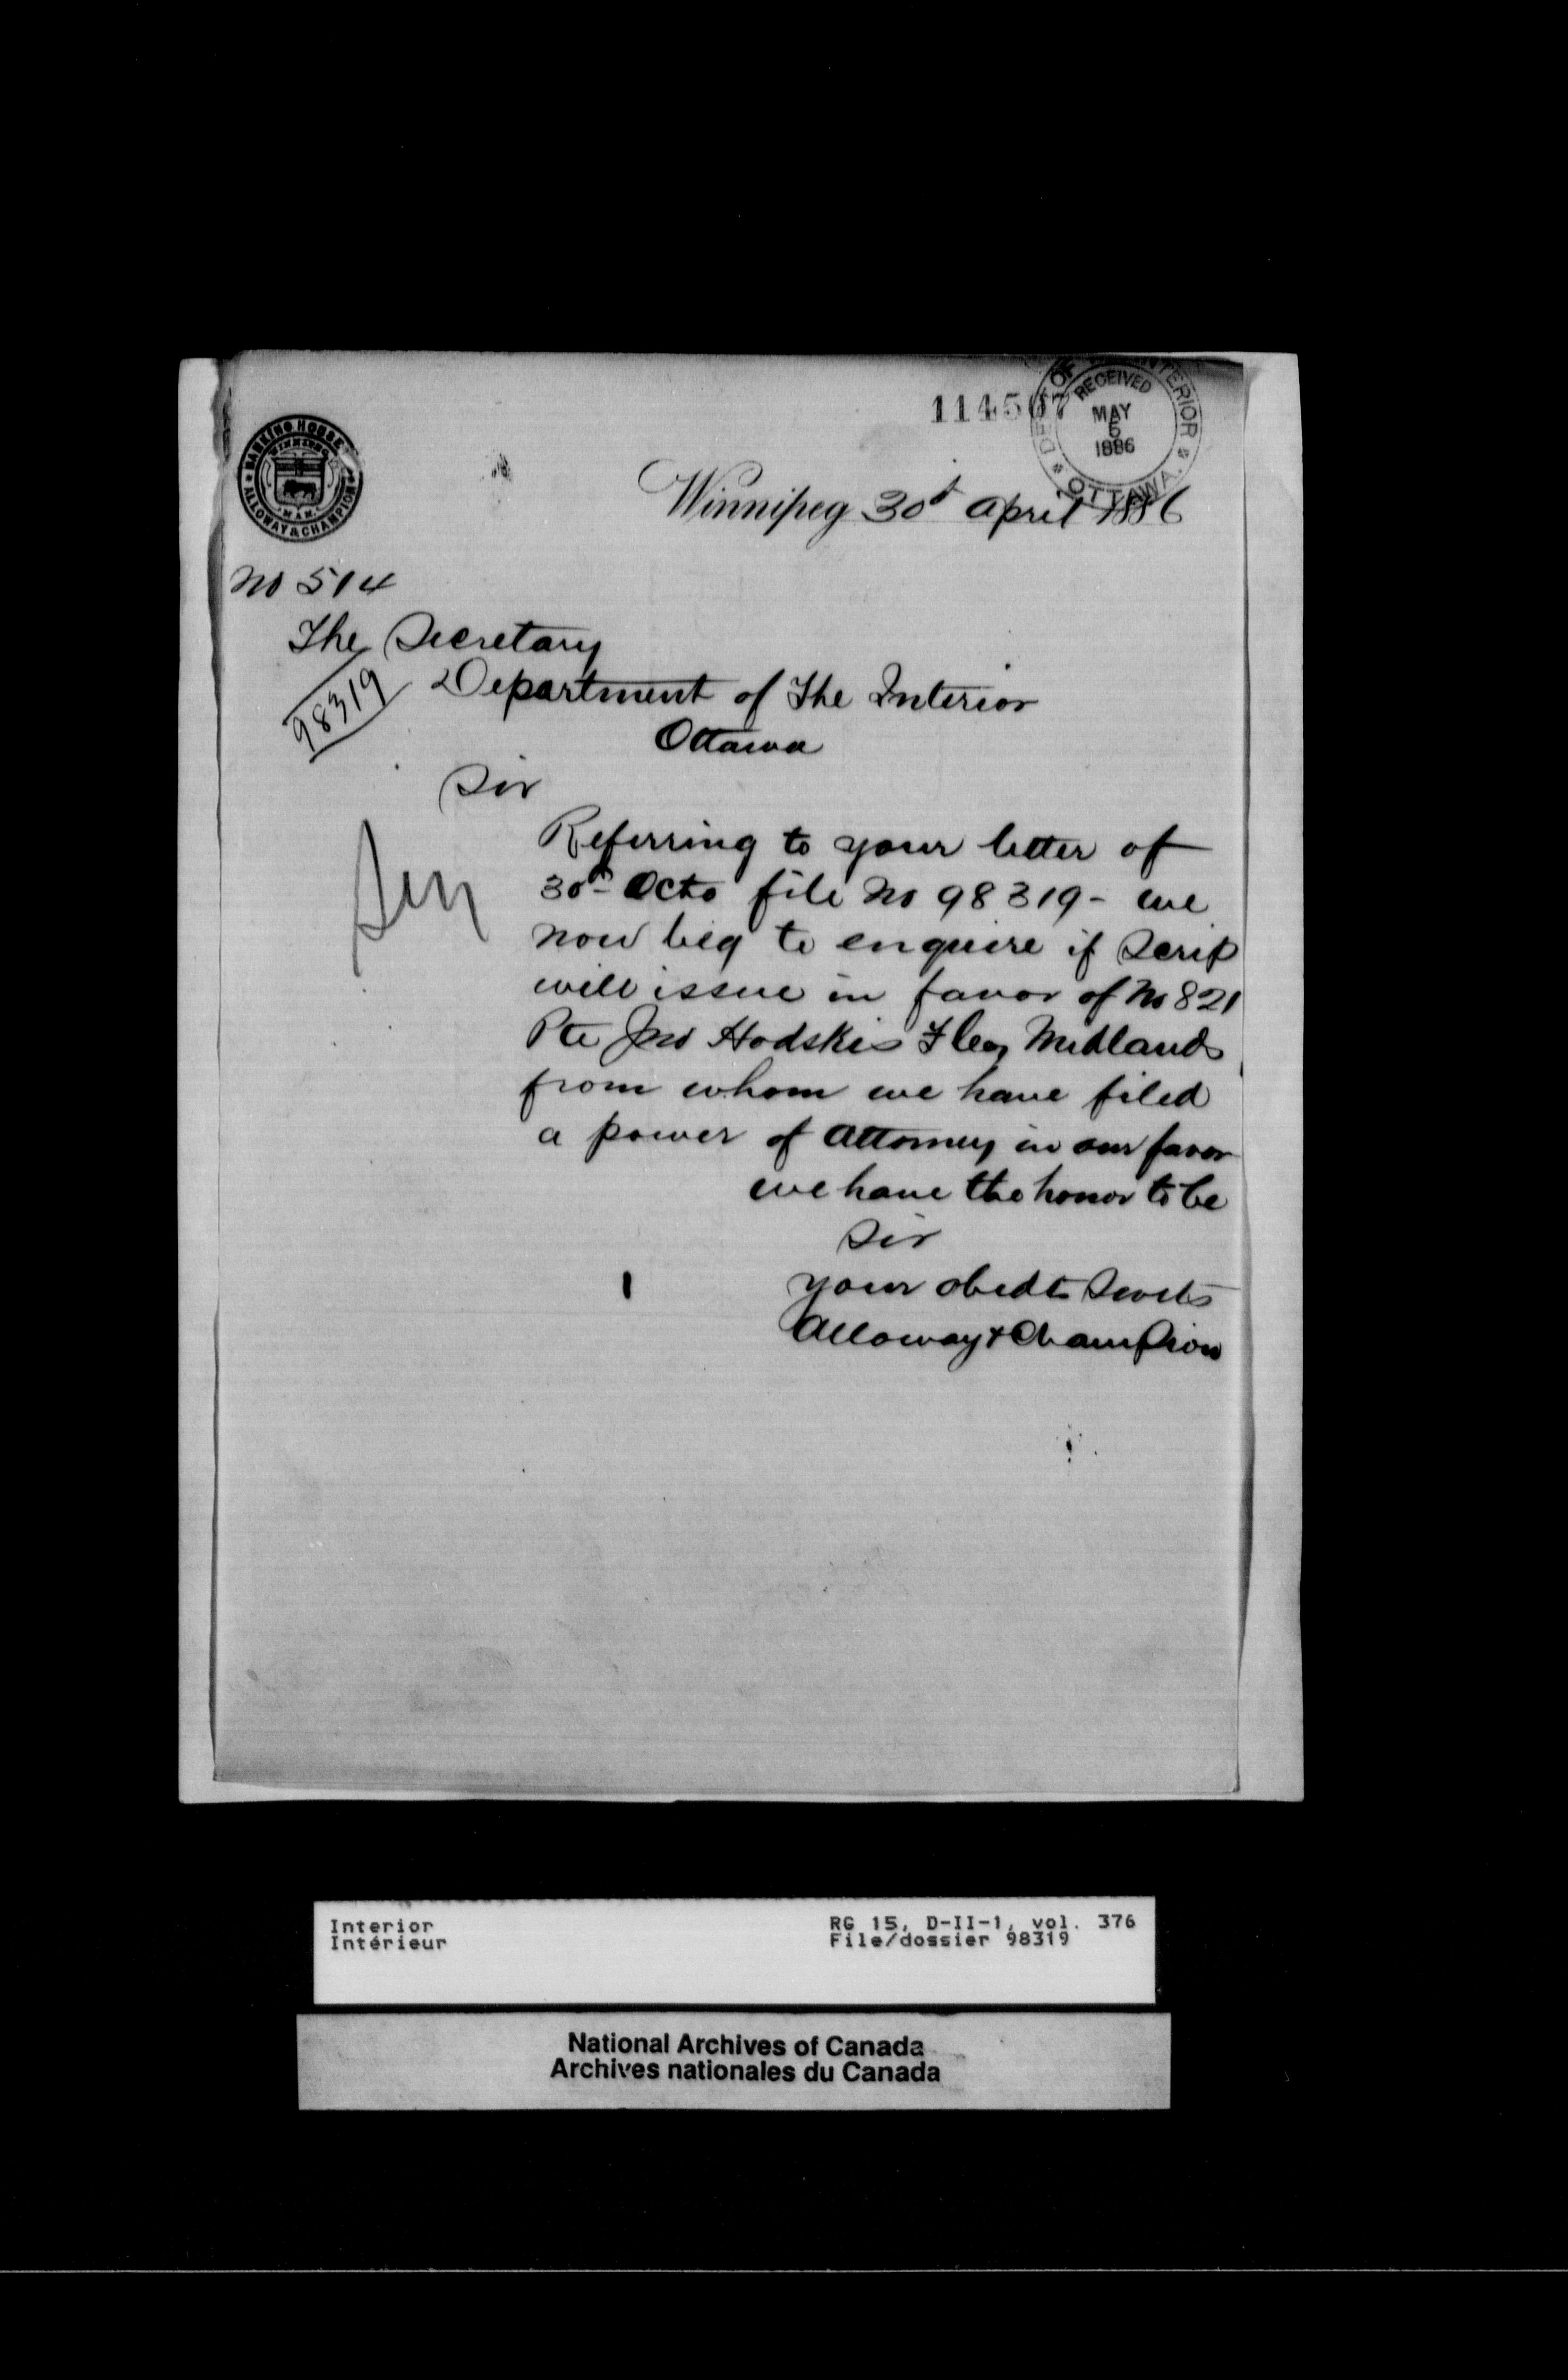 114507
DEPT OF THE INTERIOR
RECEIVED
MAY
5
1886
OTTAWA.
BANKING HOUSE
WINNIPEG
MAN.
ALLOWAY & CHAMPION
Winnipeg 30th April 1886
No 514
The Secretary
98319
Department of The Interior
Ottawa
Sir
Referring to your letter of
30th Octo file No 98319 - we
now beg to enquire if Scrip
will issue in favor of No 821
Pte Jno Hodskis F Coy Midlands
from whom we have filed
a power of Attorney in our favor
we have the honor to be
Sir
your obedt Servts
Alloway & Champion
Interior
Intérieur
RG 15, D-II-1, vol. 376
File/dossier 98319
National Archives of Canada
Archives nationales du Canada